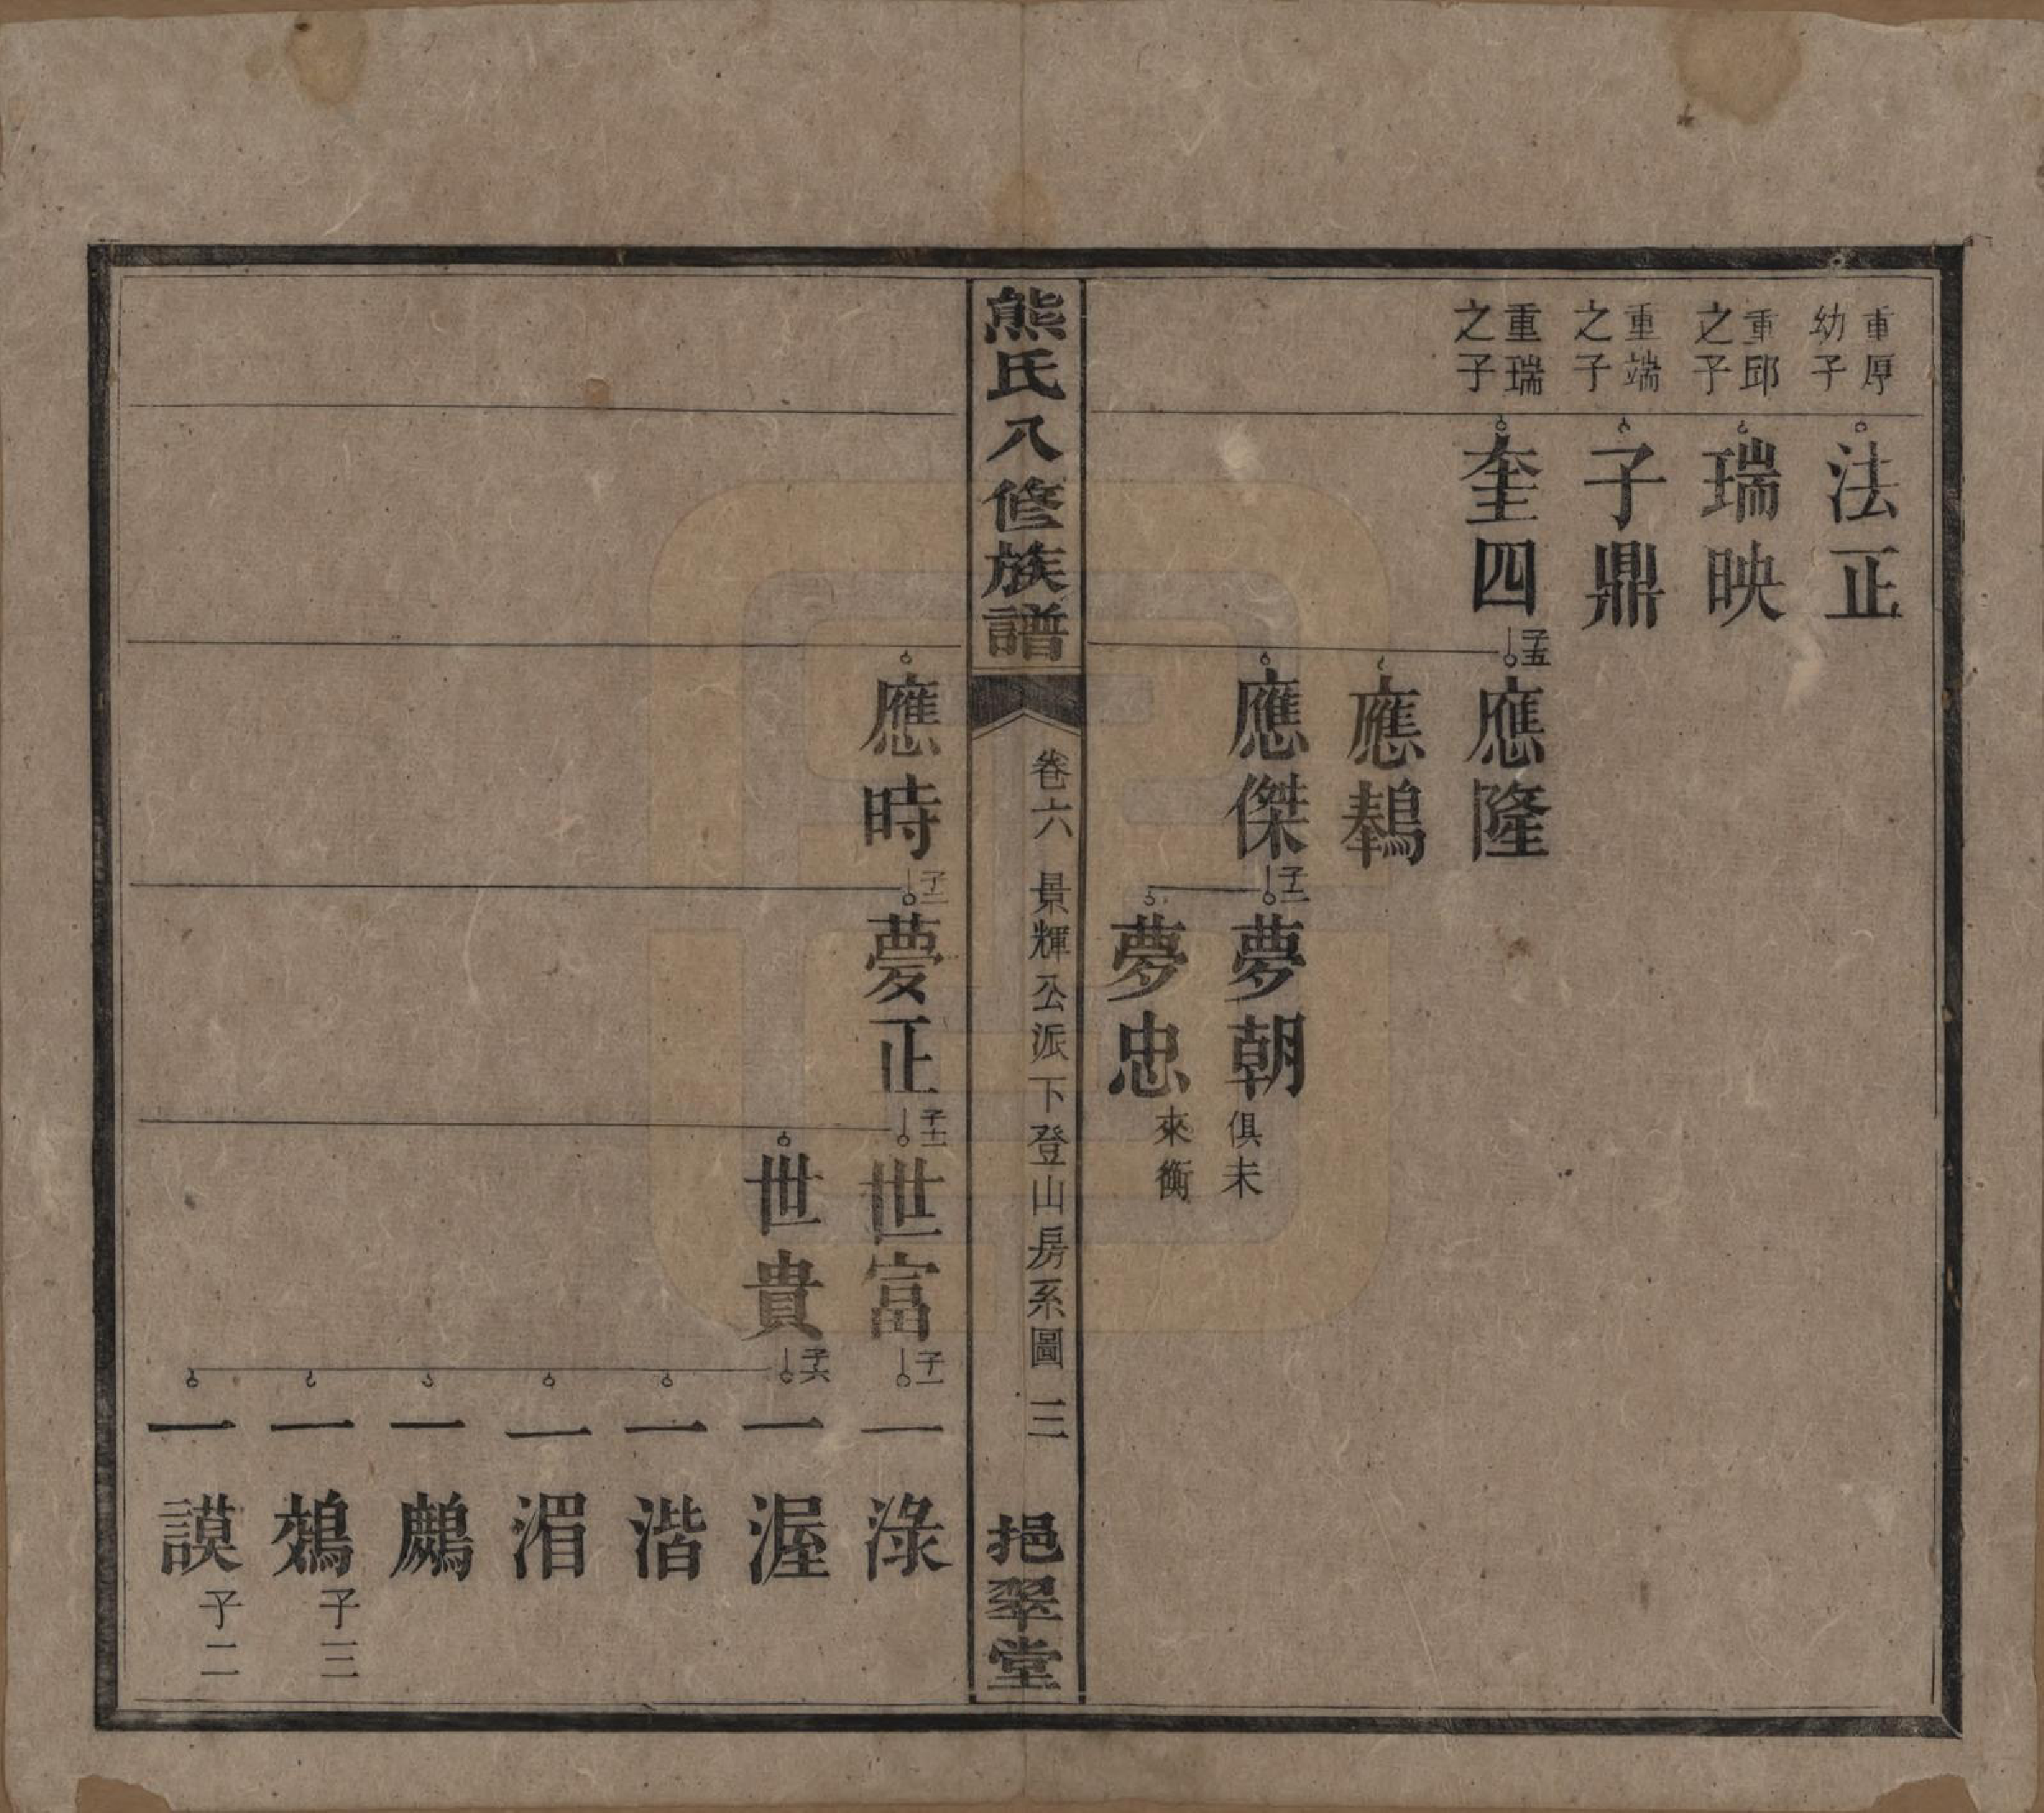 重厚
幼子
法正
重邱
之子
瑞映
重端
之子
子鼎
重瑞
之子
奎四
子五
應隆
應鶈
應傑
子二
夢朝
俱未
夢忠
來衡
熊氏八修族譜
卷六
景輝公派下登山房系圖
三
挹翠堂
應時
子一
夢正
子二
世富
子一
一淥
世貴
子六
一渥
一湝
一湄
一鷓
一鵷
子三
一謨
子二